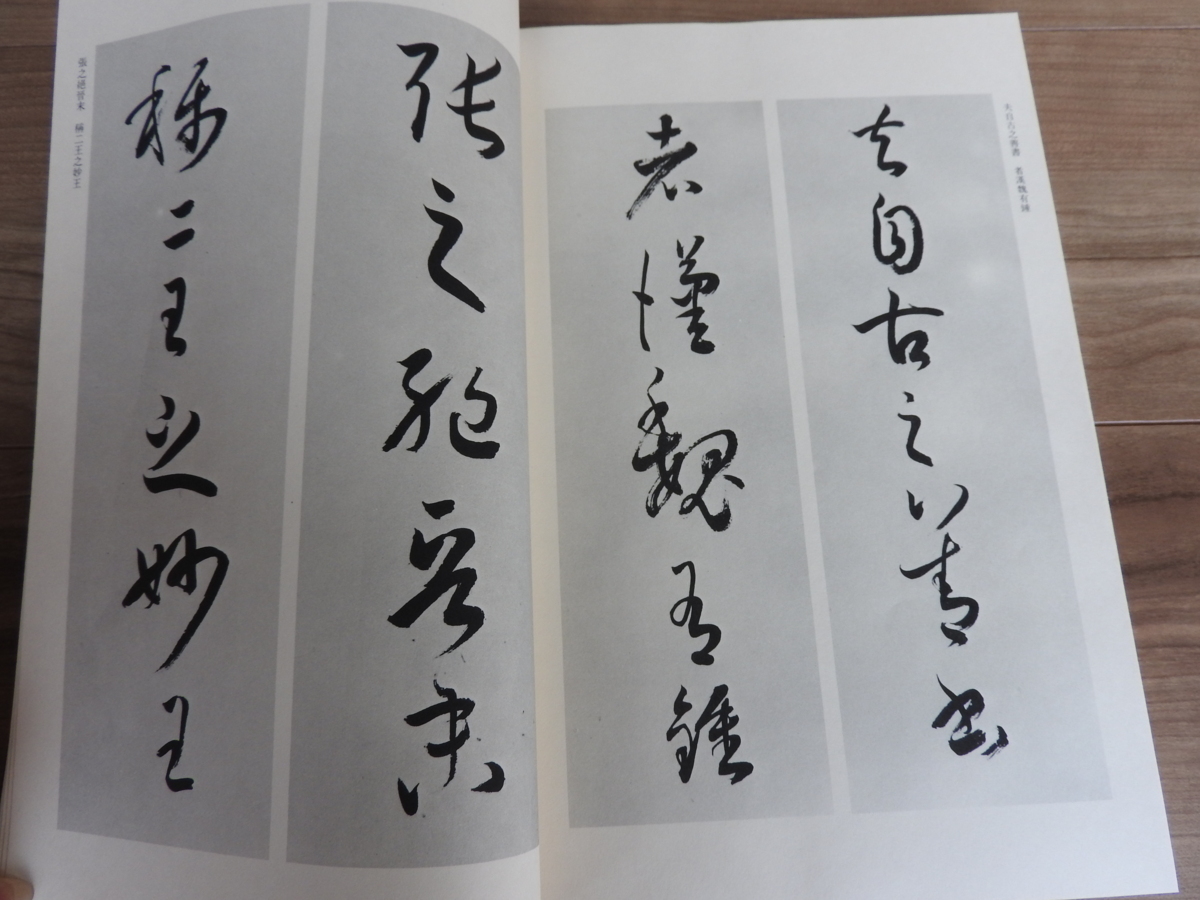 夫自古之善書　者漢魏有鍾
夫自古之善書
者漢魏有鍾
張之絶晉末
稱二王之妙王
張之絶晉末　稱二王之妙王